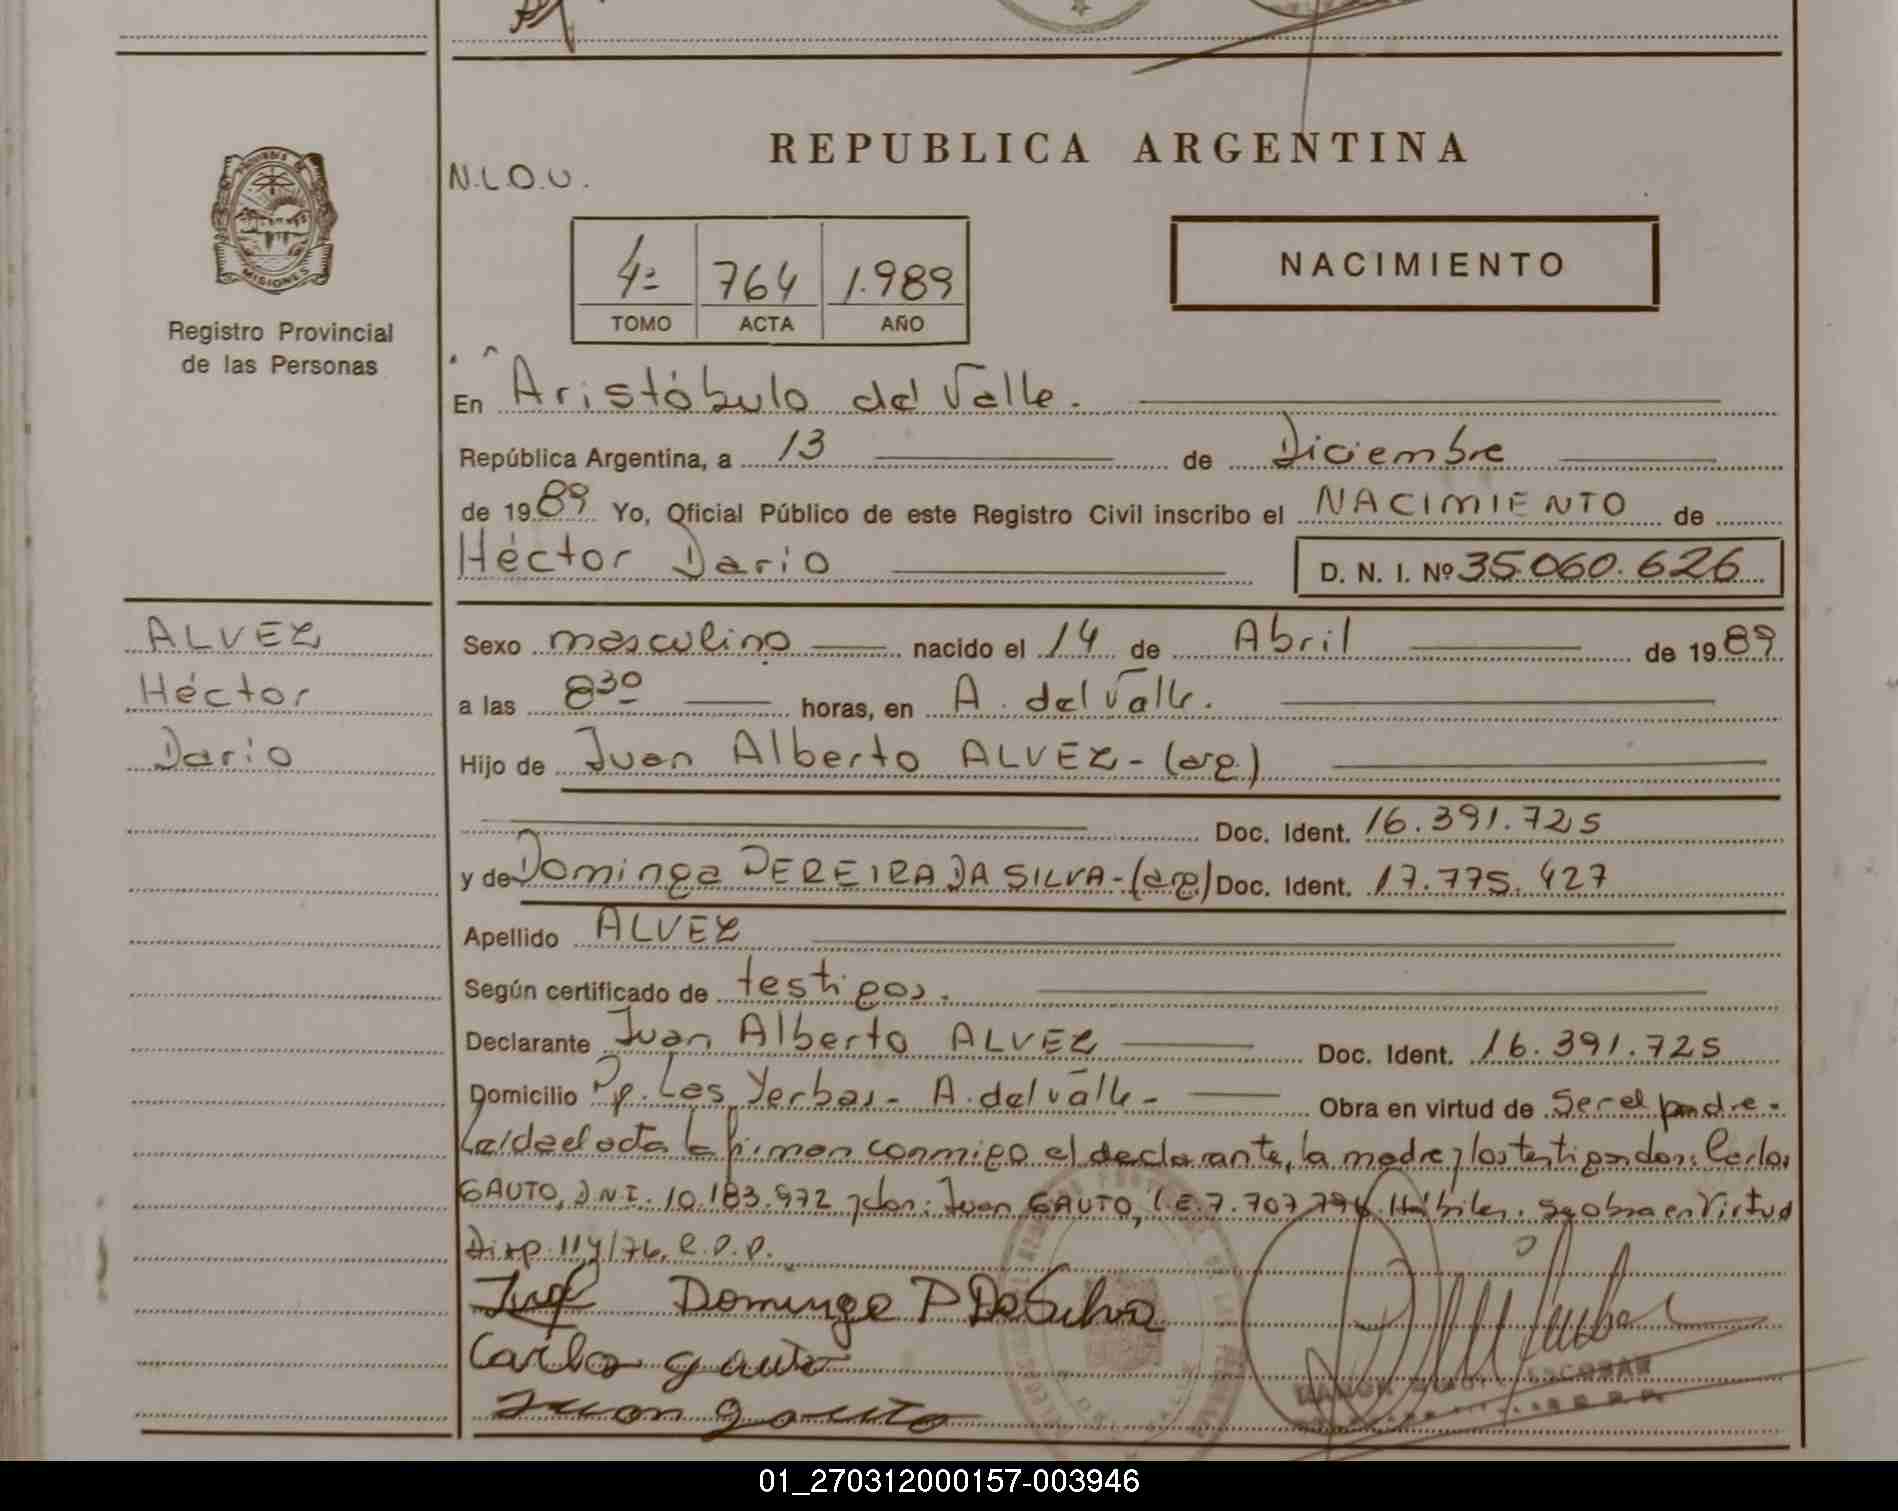 REPUBLICA ARGENTINA
N.L.O.U.
MISIONES
Registro Provincial
de las Personas
4º 764 1.989
TOMO ACTA AÑO
NACIMIENTO
En Aristóbulo del Valle.
República Argentina, a 13 de Diciembre
de 1989 Yo, Oficial Público de este Registro Civil inscribo el NACIMIENTO de
Héctor Dario D. N. I. Nº 35.060.626
ALVEZ
Héctor
Dario
Sexo masculino nacido el 14 de Abril de 1989
a las 8 30 horas, en A. del Valle.
Hijo de Juan Alberto ALVEZ - (arg.)
Doc. Ident. 16.391.725
y de Dominga PEREIRA DA SILVA - (arg) Doc. Ident. 17.775.427
Apellido ALVEZ
Según certificado de testigos.
Declarante Juan Alberto ALVEZ Doc. Ident. 16.391.725
Domicilio Pp. Las Yerbas - A. del Valle - Obra en virtud de Ser el padre.
Leída el acta la firman conmigo el declarante, la madre y los testigos don: Carlos
GAUTO, D.N.I. 10.183.972 y don: Juan GAUTO, L.E. 7.707.794. Hábiles. Sg obra en Virtud
Disp. 114/76. R.P.P.
Domingo P Da Silva
Carlos gauto
Juan gauto
ESCOBAR
01_270312000157-003946